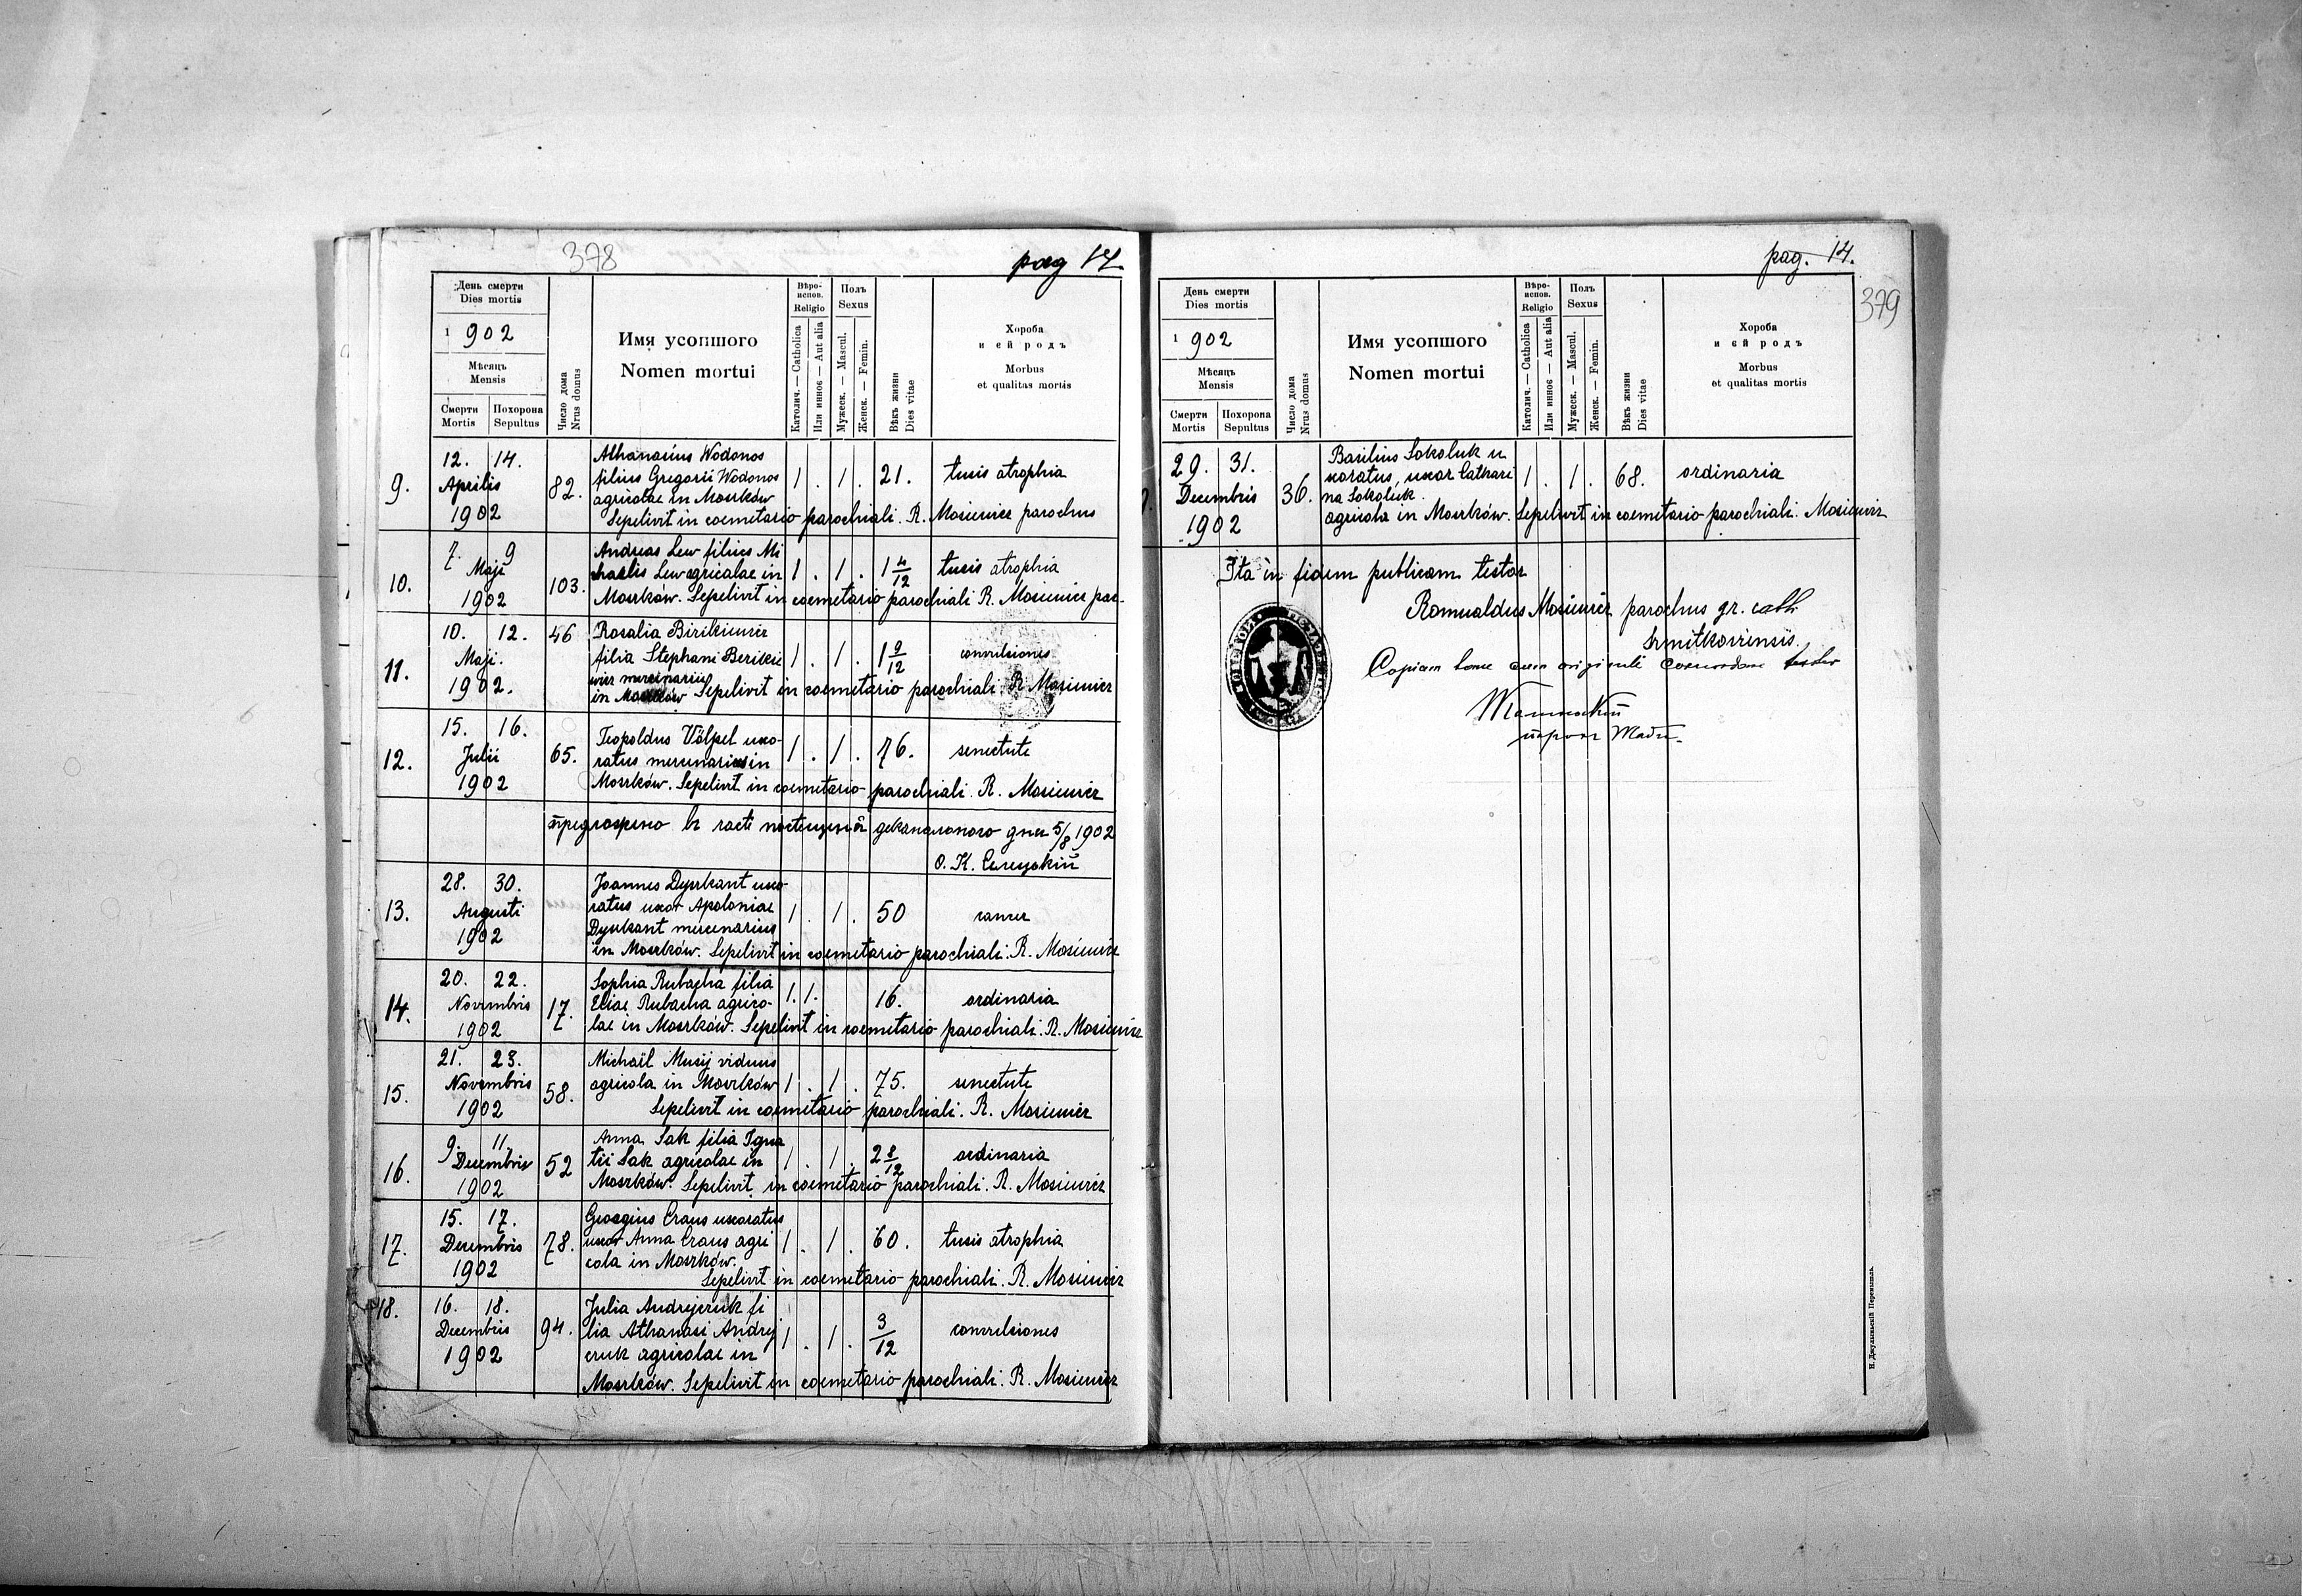 378
pag 14.
День смерти
Dies mortis
1 902
Мѣсяць
Mensis
Смерти
Mortis
Похорона
Sepultus
Число дома
Nrus domus
Имя усопшого
Nomen mortui
Вѣро-
испов.
Religio
Католич. — Catholica
Или инноє — Aut alia
Полъ
Sexus
Мужеск. — Mascul.
Женск. — Femin.
Вѣкъ жизни
Dies vitae
Хороба
и єй родъ
Morbus
et qualitas mortis
9.
12. 14.
Aprilis
1902
82.
Athanasius Wodonos
filius Gregorii Wodonos
agricolae in Moszków
Sepelivit in coemetario parochiali. R. Mosiewicz parochus
1 . 1 . 21. tusis atrophia
10.
7. 9
Maji
1902
103.
Andreas Lew filius Mi
chaelis Lew agricolae in
Moszków. Sepelivit in coemetario parochiali R. Mosiewicz par-
1 . 1 . 1 4/12 tusis atrophia
11.
10. 12.
Maji.
1902.
46
Rosalia Birikiewicz
filia Stephani Berikie
wicz mercenarius
in Moszków Sepelivit in coemetario parochiali. R. Mosiewicz
1 . 1 . 1 9/12 convulsiones
12.
15. 16.
Julii
1902
65.
Leopoldus Völpel uxo-
ratus mercenarius in
Moszków. Sepelivit in coemetario parochiali. R. Mosiewicz
1 . 1 . 76. senectute
5/8 1902
О. К. Селецкій
13.
28. 30.
Augusti
1902
Joannes Dyszkant uxo-
ratus uxor Apoloniae
Dyszkant mercenarius
in Moszków. Sepelivit in coemetario parochiali. R. Mosiewicz
1 . 1 . 50 cancer
14.
20. 22.
Novembris
1902
17.
Sophia Rubacha filia
Eliae Rubacha agrico-
lae in Moszków. Sepelivit in coemetario parochiali. R. Mosiewicz
1. 1. 16. ordinaria
15.
21. 23.
Novembris
1902
58.
Michaël Musij viduus
agricola in Moszków
Sepelivit in coemetario parochiali. R. Mosiewicz
1 . 1 . 75. senectute
16.
9. 11.
Decembris
1902
52
Anna Sak filia Igna
tii Sak agricolae in
Moszków. Sepelivit in coemetario parochiali. R. Mosiewicz
1 . 1 . 2 8/12 ordinaria
17.
15. 17.
Decembris
1902
78.
Georgius Craus uxoratus
uxor Anna Craus agri
cola in Moszków.
Sepelivit in coemetario parochiali. R. Mosiewicz
1 . 1 . 60. tusis atrophia
18.
16. 18.
Decembris
1902
94.
Julia Andrejczuk fi
lia Athanasi Andrej
czuk agricolae in
Moszków. Sepelivit in coemetario parochiali. R. Mosiewicz
1 . 1 . 3/12 convulsiones
pag. 14.
379
День смерти
Dies mortis
1 902
Мѣсяць
Mensis
Смерти
Mortis
Похорона
Sepultus
Число дома
Nrus domus
Имя усопшого
Nomen mortui
Вѣро-
испов.
Religio
Католич. — Catholica
Или инноє — Aut alia
Полъ
Sexus
Мужеск. — Mascul.
Женск. — Femin.
Вѣкъ жизни
Dies vitae
Хороба
и єй родъ
Morbus
et qualitas mortis
29. 31.
Decembris
1902
36.
Basilius Sokoluk u
xoratus, uxor Cathari
na Sokoluk.
agricola in Moszków. Sepelivit in coemetario parochiali. Mosiewicz
1 . 1 . 68. ordinaria
Ita in fidem publicam testor
Romualdus Mosiewicz parochus gr. cath.
Copiam hanc cum originali concordare testor
Н. Джулыньскій Перемышль.